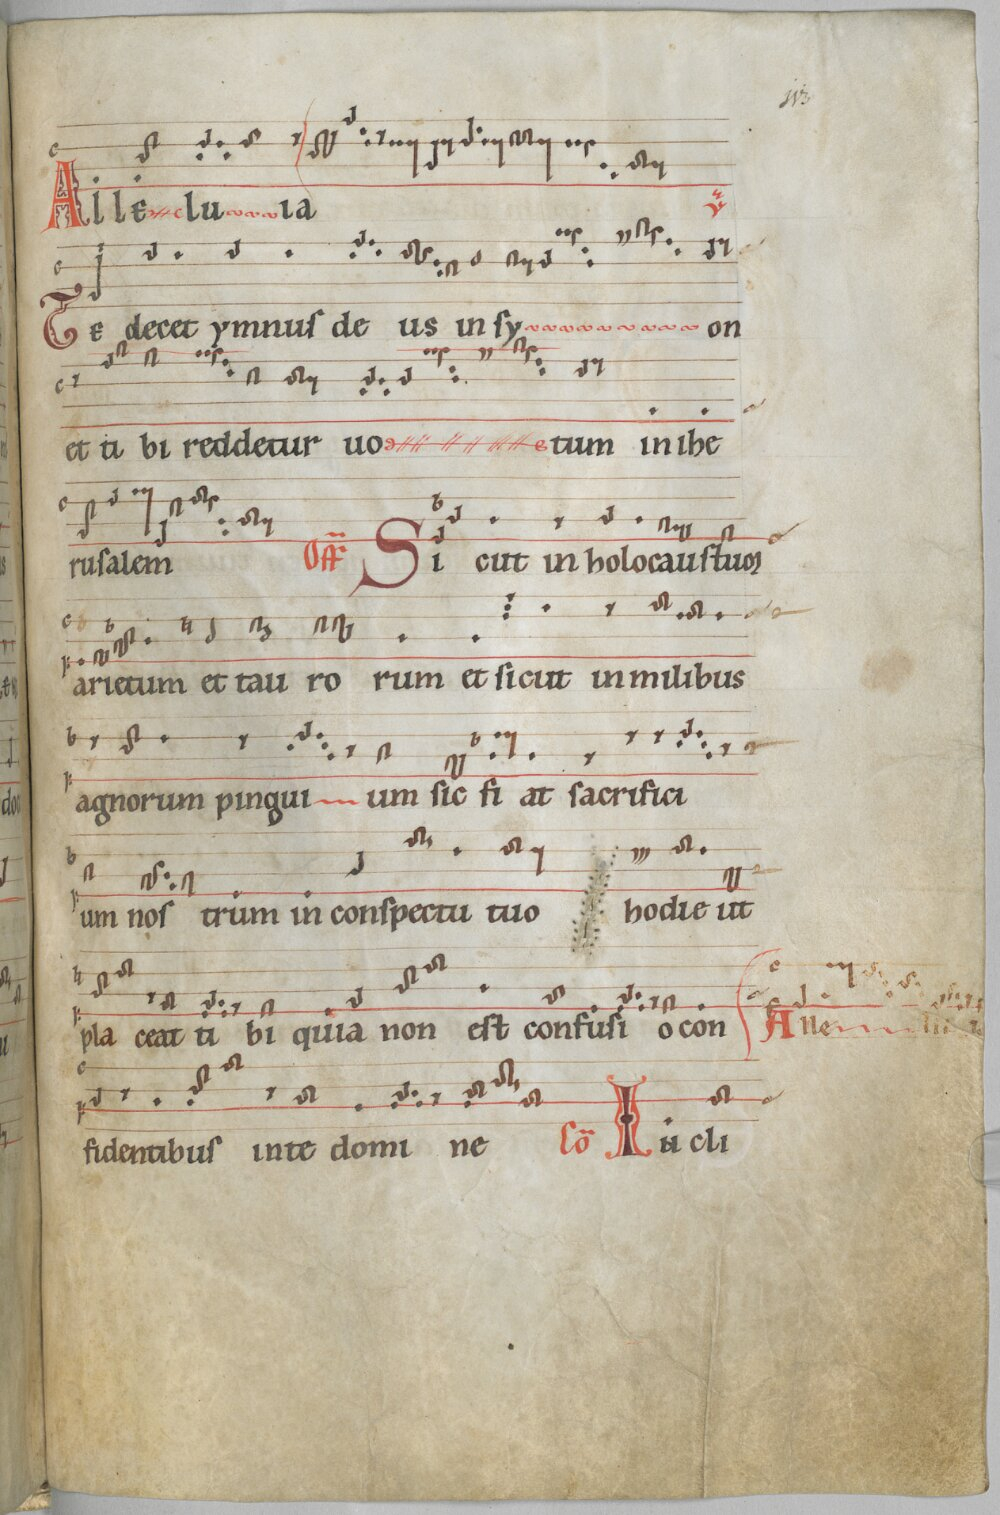 Alleluia
Te decet ymnus deus in syon
et tibi reddetur uotum in ihe
rusalem Off Sicut in holocaustum
arietum et taurorum et sicut in milibus
agnorum pinguium sic fiat sacrifici
um nostrum in conspectu tuo hodie ut
placeat tibi quia non est confusio con
Alle
fidentibus in te domine Co Iu cli